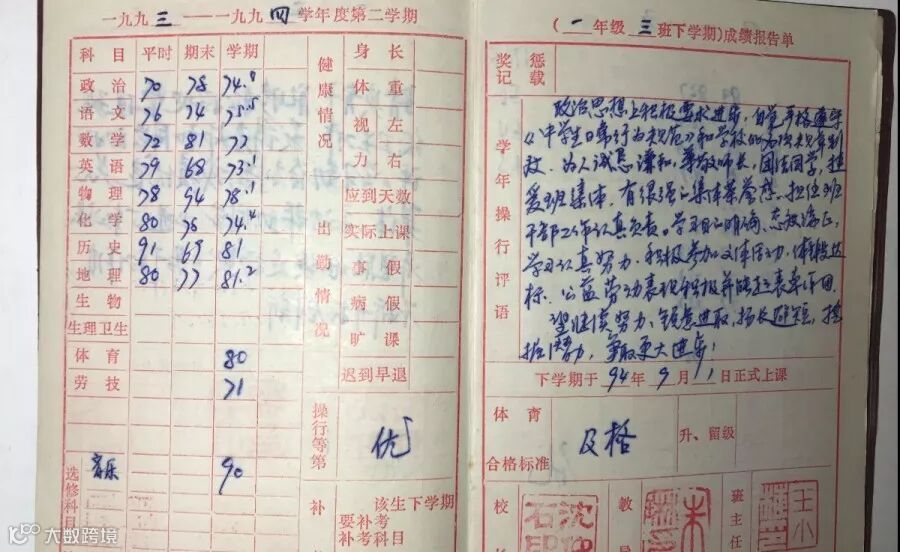 一九九三——一九九四学年度第二学期
科目 平时 期末 学期
政治 70 78 74.8
语文 76 74 75.5
数学 72 81 77
英语 79 68 73.1
物理 78 94 78.1
化学 80 74.4
历史 91 69 81
地理 80 77 81.2
生物
生理卫生
体育 80
劳技 71
选修科目 音乐 90
健康情况
身长
体重
视力 左
右
出勤情况
应到天数
实际上课
事假
病假
旷课
迟到早退
操行等第 优
补
该生下学期
要补考
补考科目
(一年级三班下学期)成绩报告单
奖惩记载
学年操行评语
政治思想上积极要求进步,自觉严格遵守
《中学生日常行为规范》和学校的各项规章制
度。为人诚恳谦和,尊敬师长,团结同学,热
爱班集体,有很强的集体荣誉感。担任班
干部工作认真负责。学习目的明确、态度端正,
学习认真努力。积极参加文体活动,体锻达
标。公益劳动表现积极并能起表率作用。
望继续努力、锐意进取,扬长避短,挖
掘潜力,争取更大进步!
下学期于94年9月1日正式上课
体育合格标准 及格 升、留级
校
教
班主任
大数跨境